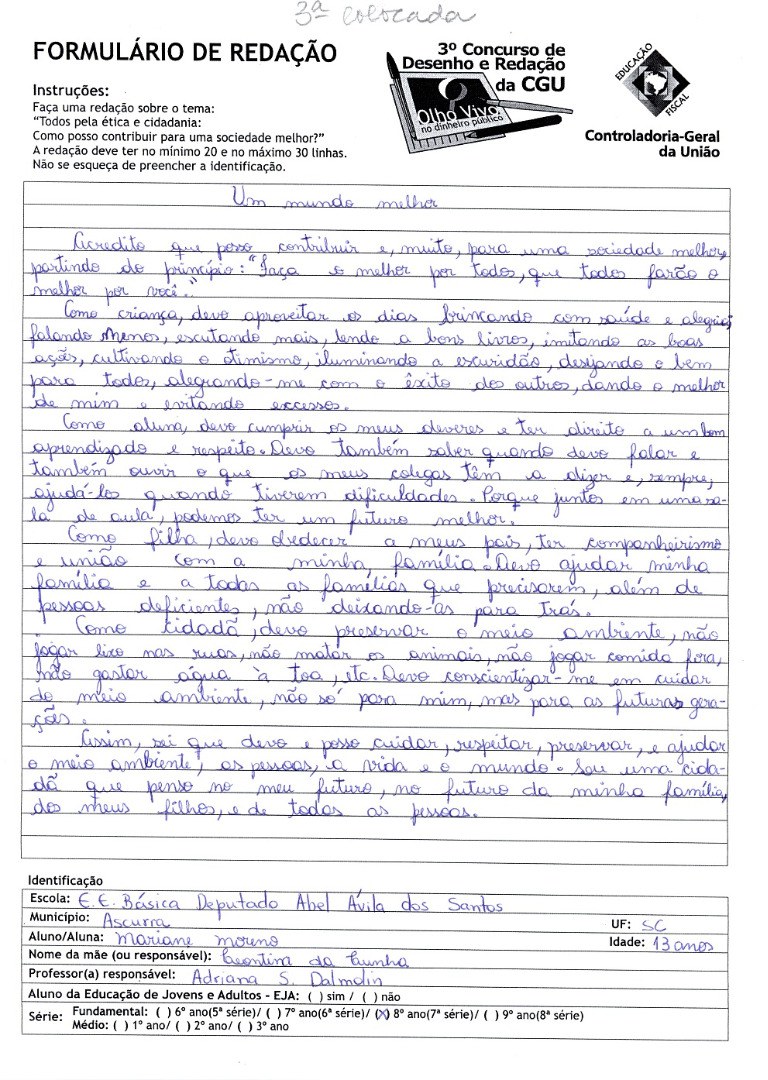 3ª colocada
FORMULÁRIO DE REDAÇÃO
Instruções:
Faça uma redação sobre o tema:
“Todos pela ética e cidadania:
Como posso contribuir para uma sociedade melhor?”
A redação deve ter no mínimo 20 e no máximo 30 linhas.
Não se esqueça de preencher a identificação.
3º Concurso de
Desenho e Redação
da CGU
Olho Vivo
no dinheiro público
EDUCAÇÃO
FISCAL
Controladoria-Geral
da União
Um mundo melhor
Acredito que posso contribuir e, muito, para uma sociedade melhor,
partindo do princípio: "Faça o melhor por todos, que todos farão o
melhor por você."
Como criança, devo aproveitar os dias brincando com saúde e alegria,
falando menos, escutando mais, lendo a bons livros, imitando as boas
ações, cultivando o otimismo, iluminando a escuridão, desejando o bem
para todos, alegrando-me com o êxito dos outros, dando o melhor
de mim e evitando excessos.
Como aluna, devo cumprir os meus deveres e ter direito a um bom
aprendizado e respeito. Devo também saber quando devo falar e
também ouvir o que os meus colegas têm a dizer e, sempre,
ajudá-los quando tiverem dificuldades. Porque juntos em uma sa-
la de aula, podemos ter um futuro melhor.
Como filha, devo obedecer a meus pais, ter companheirismo
e união com a minha, família. Devo ajudar minha
família e a todas as famílias que precisarem, além de
pessoas deficientes, não deixando-as para trás.
Como cidadã, devo preservar o meio ambiente, não
jogar lixo nas ruas, não matar os animais, não jogar comida fora,
não gastar água à toa, etc. Devo conscientizar-me em cuidar
do meio ambiente, não só para mim, mas para as futuras gera-
ções.
Assim, sei que devo e posso cuidar, respeitar, preservar, e ajudar
o meio ambiente, as pessoas, a vida e o mundo. Sou uma cida-
dã que penso no meu futuro, no futuro da minha família,
dos meus filhos, e de todas as pessoas.
Identificação
Escola: E.E. Básica Deputado Abel Ávila dos Santos
Município: Ascurra UF: SC
Aluno/Aluna: Mariane moreno Idade: 13 anos
Nome da mãe (ou responsável): Leontina da Cunha
Professor(a) responsável: Adriana S. Dalmolin
Aluno da Educação de Jovens e Adultos - EJA: ( ) sim / ( ) não
Série: Fundamental: ( ) 6º ano(5ª série)/ ( ) 7º ano(6ª série)/ (X) 8º ano(7ª série)/ ( ) 9º ano(8ª série)
Médio: ( ) 1º ano/ ( ) 2º ano/ ( ) 3º ano